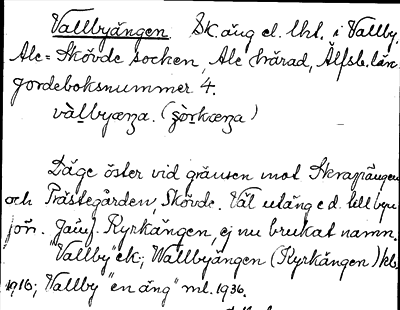 Vallbyängen. Sk. äng el. lht. i Vallby,
Ale-Skövde socken, Ale härad, Älfsb. län
Jordeboksnummer 4.
vàlbyæŋa. (çòrkæŋa)
Läge öster vid gränsen mot Skrapiängen
och Prästegården, Skövde. Vät utäng e d. till byn
jön. Jämf. Kyrkängen ej nu brukat namn.
Vallby ek; Wallbyängen (Kyrkängen) kb.
1916; Vallby "en äng" ml. 1936.